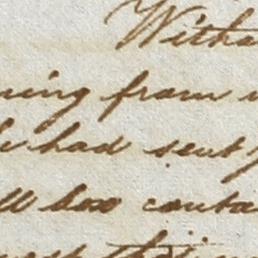 Witha
ning from
he had sent
ll box conta